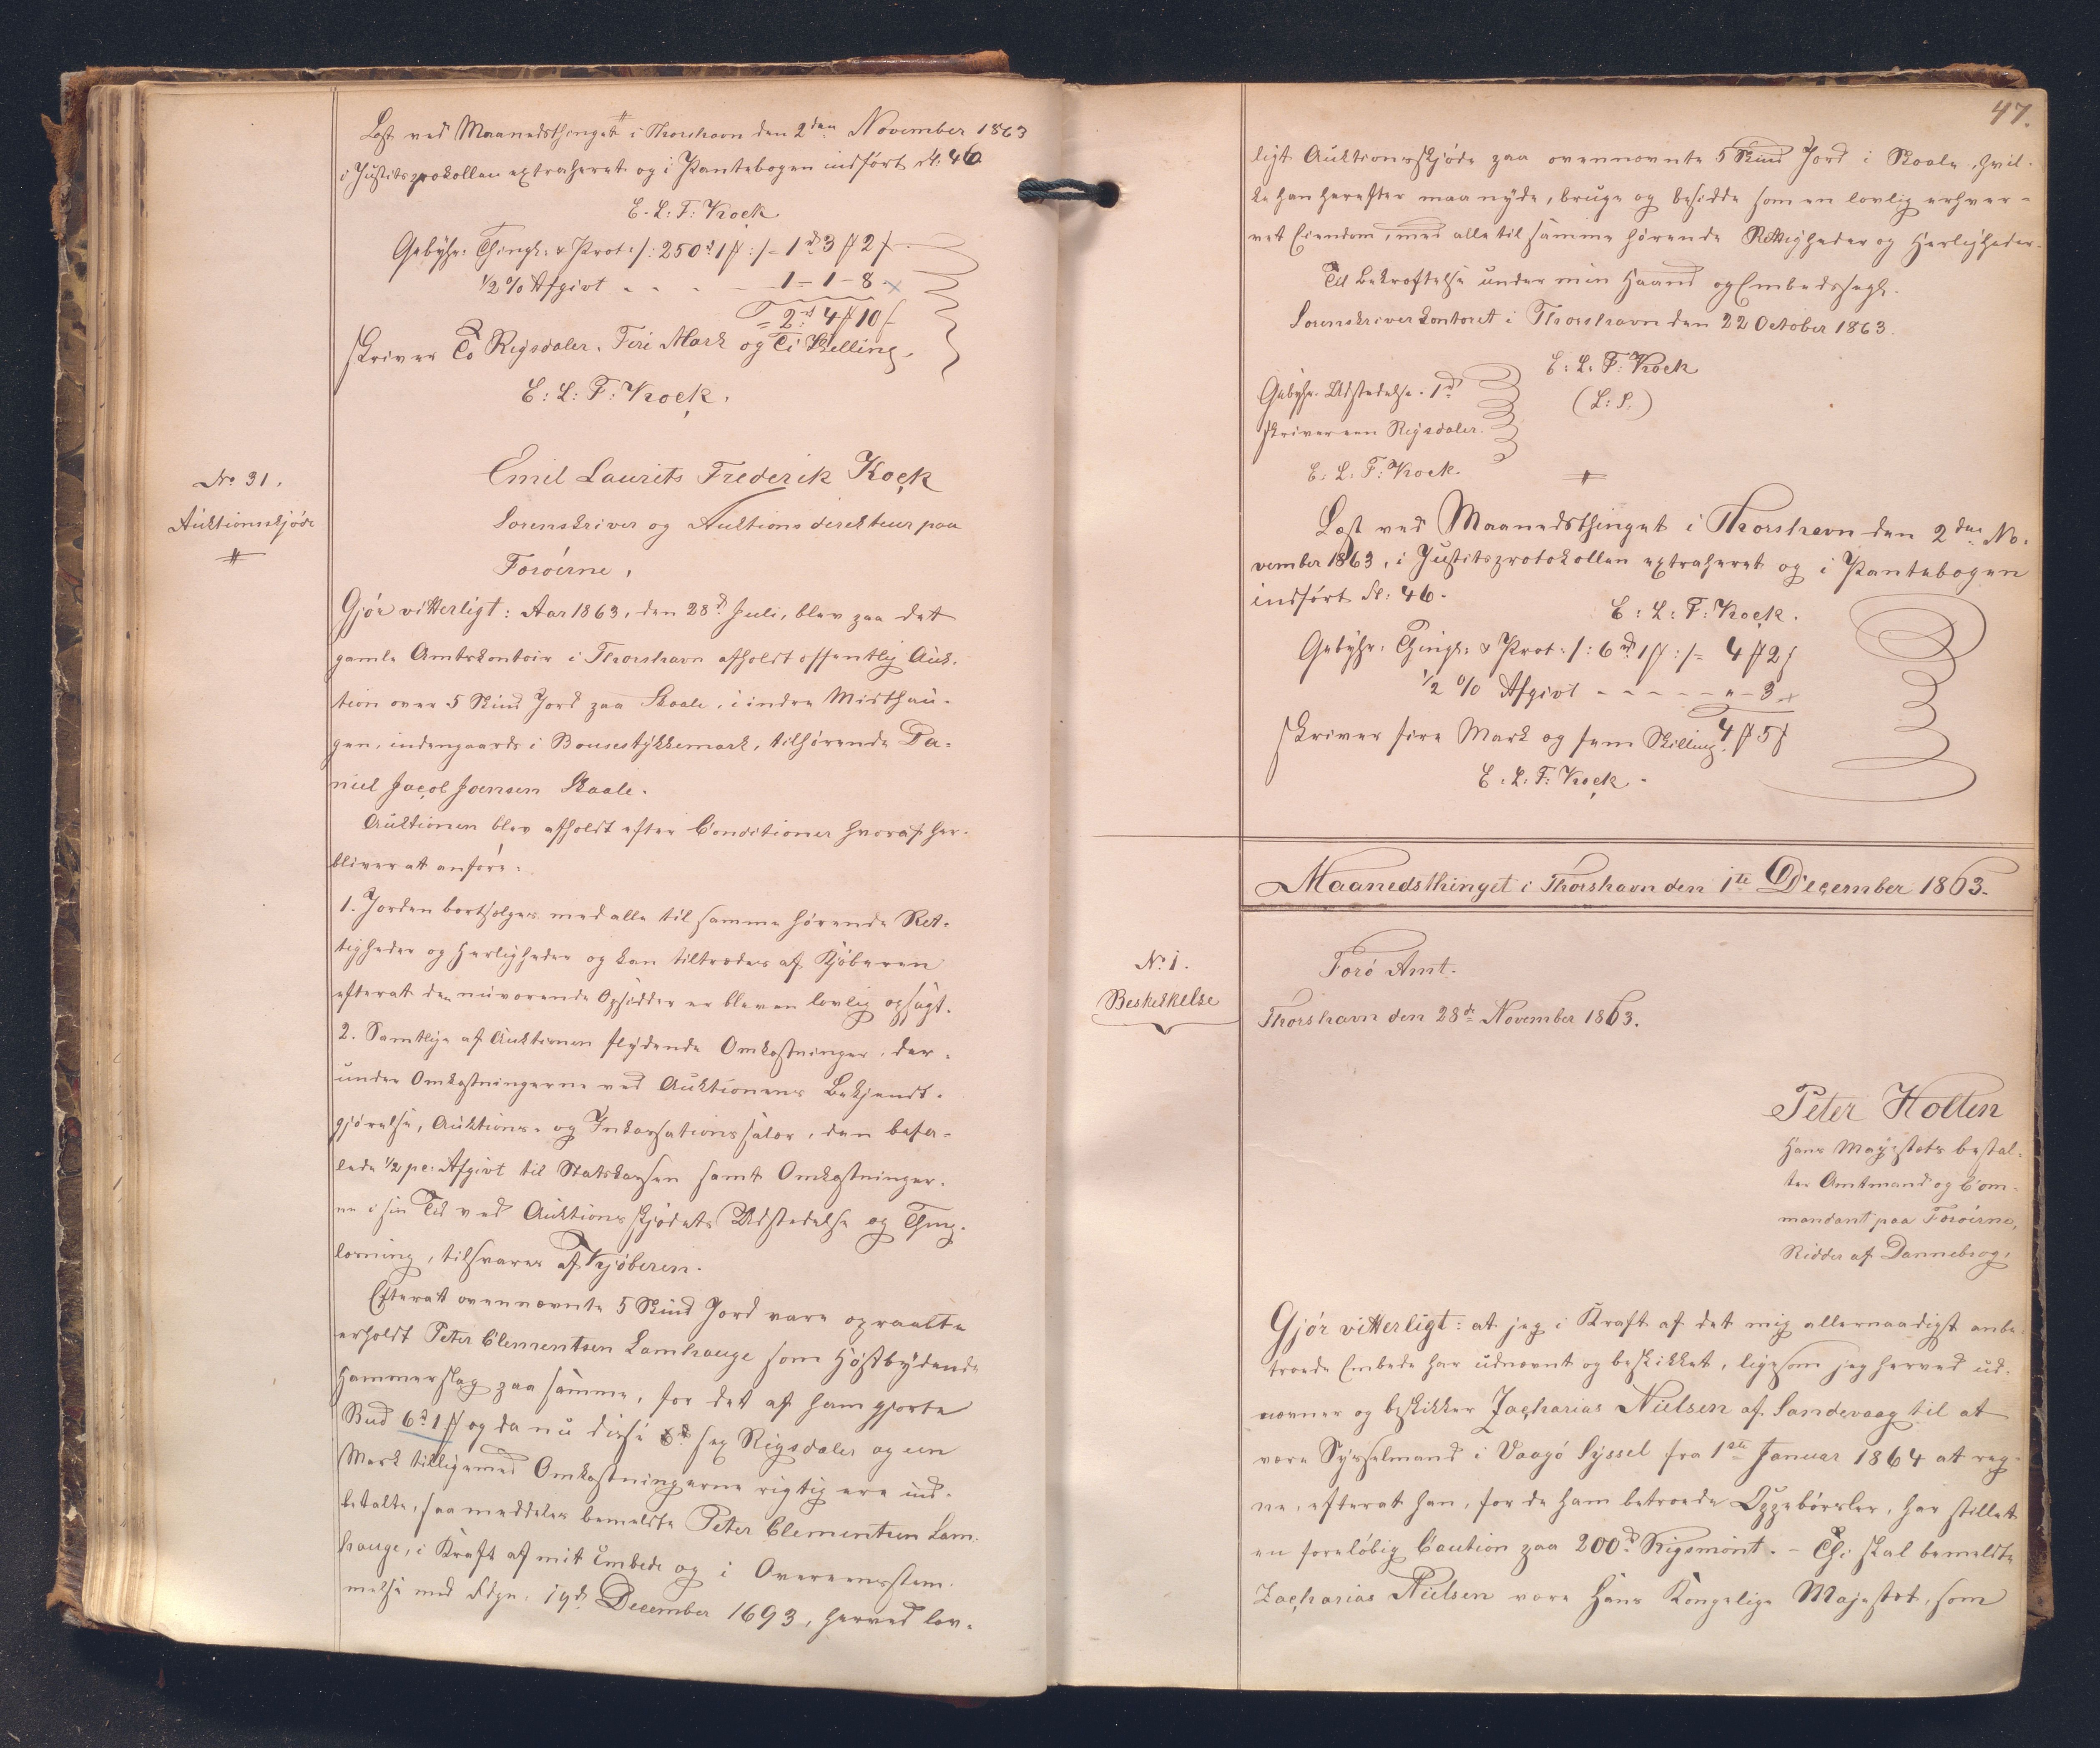 Læst ved Maanedsthinget i Thorshavn den 2den November 1863
i Justitsprotokollen extraheret og i Pantebogen indført Fol: 46
E. L: F: Kock
Gebyhr: Thingl: & Prot: /: 250 rd 1 ß :/ = 1 rd 3 ß 2 f
1/2 % Afgivt - - - - 1 - 1 - 8
= 2 rd 4 ß 10 f
skriver To Rigsdaler, Fire Mark og Ti Skilling.
E: L: F: Kock.
No 31.
Auktionsskjöde
Emil Laurits Frederik Kock
Sorenskriver og Auktionsdirekteur paa
Færöerne,
Gjör vitterligt: Aar 1863, den 28d Juli, blev paa det
gamle Amtskontoir i Thorshavn afholdt offentlig Auk-
tion over 5 Skind Jord paa Skaale, i indre Misthau-
gen, indengaards i Bousestykkemark, tilhörende Da-
niel Jacob Joensen Skaale.
Auktionen blev afholdt efter Conditioner hvoraf her
bliver at anföre:
1. Jorden bortsælges med alle til samme hörende Ret-
tigheder og Herligheder og kan tiltrædes af Kjöberen
efterat den nuværende Opsidder er bleven lovlig opsagt.
2. Samtlige af Auktionen flydende Omkostninger, der-
under Omkostningerne ved Auktionens Bekjendt-
gjörelse, Auktions- og Inkassationssalær, den befa-
lede 1/2 pc. Afgivt til Statskassen samt Omkostninger-
ne i sin Tid ved Auktionsskjödets Udstedelse og Thing-
læsning, tilsvares af Kjöberen.
Efterat ovennævnte 5 Skind Jord vare opraabte
erholdt Peter Clementsen Lamhauge som Höistbydende
Hammerslag paa samme, for det af ham gjorte
Bud 6 rd 1 ß og da nu disse 6 rd sex Rigsdaler og een
Mark tilligemed Omkostningerne rigtig ere ind-
betalte, saa meddeles bemeldte Peter Clementsen Lam-
hauge, i Kraft af mit Embede og i Overeensstem-
melse med Fdgn. 19d December 1693, herved lov-
47.
ligt Auktionsskjöde paa ovennævnte 5 Skind Jord i Skaale, hvil-
ke han herefter maa nyde, bruge og besidde som en lovlig erhver-
vet Eiendom, med alle til samme hörende Rettigheder og Herligheder.
Til Bekræftelse under min Haand og Embedssegl.
Sorenskriverkontoret i Thorshavn den 22 October 1863.
E: L: F: Kock
(L: S:)
Gebyhr. Udstedelse. 1 rd
skriver een Rigsdaler.
E: L: F: Kock.
Læst ved Maanedsthinget i Thorshavn den 2den No-
vember 1863, i Justitsprotokollen extraheret og i Pantebogen
indfört Fol: 46.
E: L: F: Kock.
Gebyhr: Thingl: & Prot: /: 6 rd 1 ß :/ = 4 ß 2 f
1/2 % Afgivt - - - - - " - 3
4 ß 5 f
skriver fire Mark og fem Skilling.
E. L: F: Kock.
Maanedsthinget i Thorshavn den 1te December 1863.
No 1.
Beskikkelse
Færö Amt.
Thorshavn den 28de November 1863.
Peter Holten
Hans Majestæts bestal-
ter Amtmand og Com-
mandant paa Færöerne,
Ridder af Dannebrog,
Gjör vitterligt: at jeg i Kraft af det mig allernaadigst anbe-
troede Embede har udnævnt og beskikket, ligesom jeg herved ud-
nævner og beskikker Zacharias Nielsen af Sandevaag til at
være Sysselmand i Vaagö Syssel fra 1ste Januar 1864 at reg-
ne, efterat han, for de ham betroede Oppebörsler, har stillet
en forelöbig Caution paa 200 rd Rigsmönt. - Thi skal bemeldte
Zacharias Nielsen være Hans Kongelige Majestæt, som